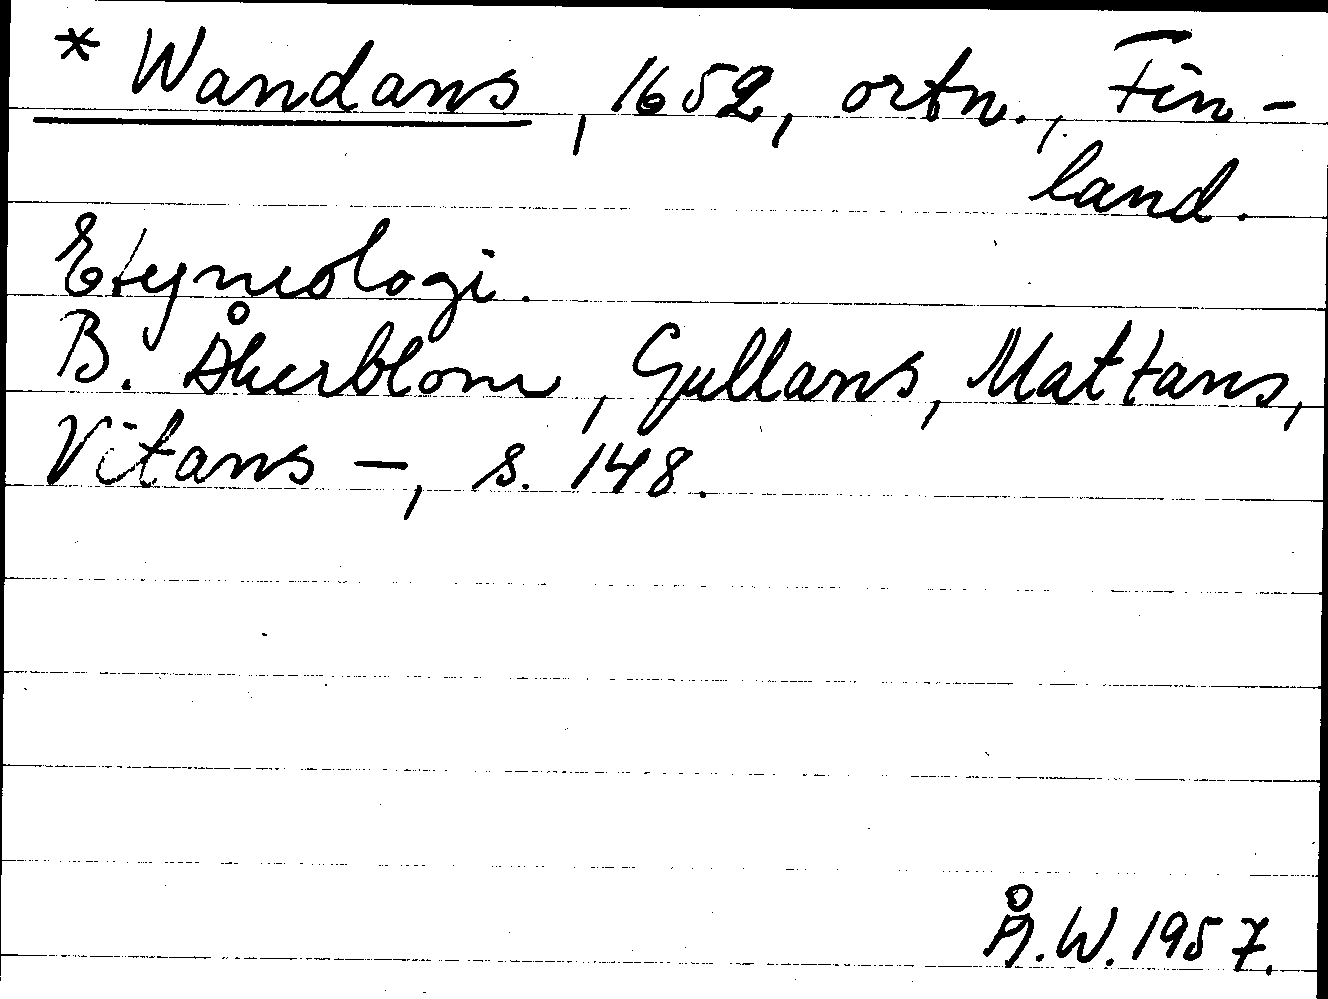 * Wandans, 1652, ortn., Fin-
land.
Etymologi.
B. Åkerblom, Gullans, Mattans,
Vitans –, s. 148.
Å.W. 1957.